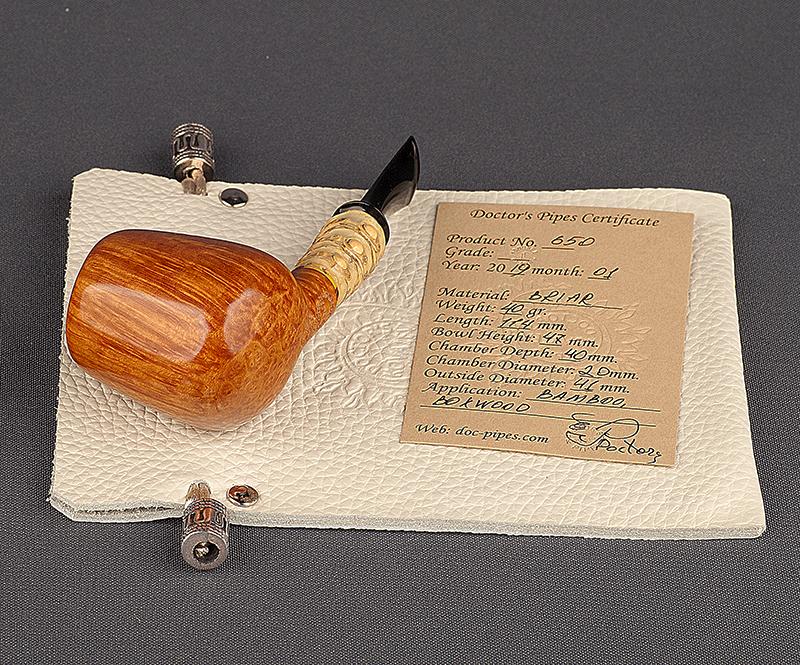 Doctor's Pipes Certificate
Product No. 650
Grade:
Year: 2019 month: 01
Material: BRIAR
Weight: 40 gr.
Length: 114 mm.
Bowl Height: 48 mm.
Chamber Depth: 40 mm.
Chamber Diameter: 20 mm.
Outside Diameter: 41 mm.
Application: BAMBOO,
BOXWOOD
Web: doc-pipes.com Doctors